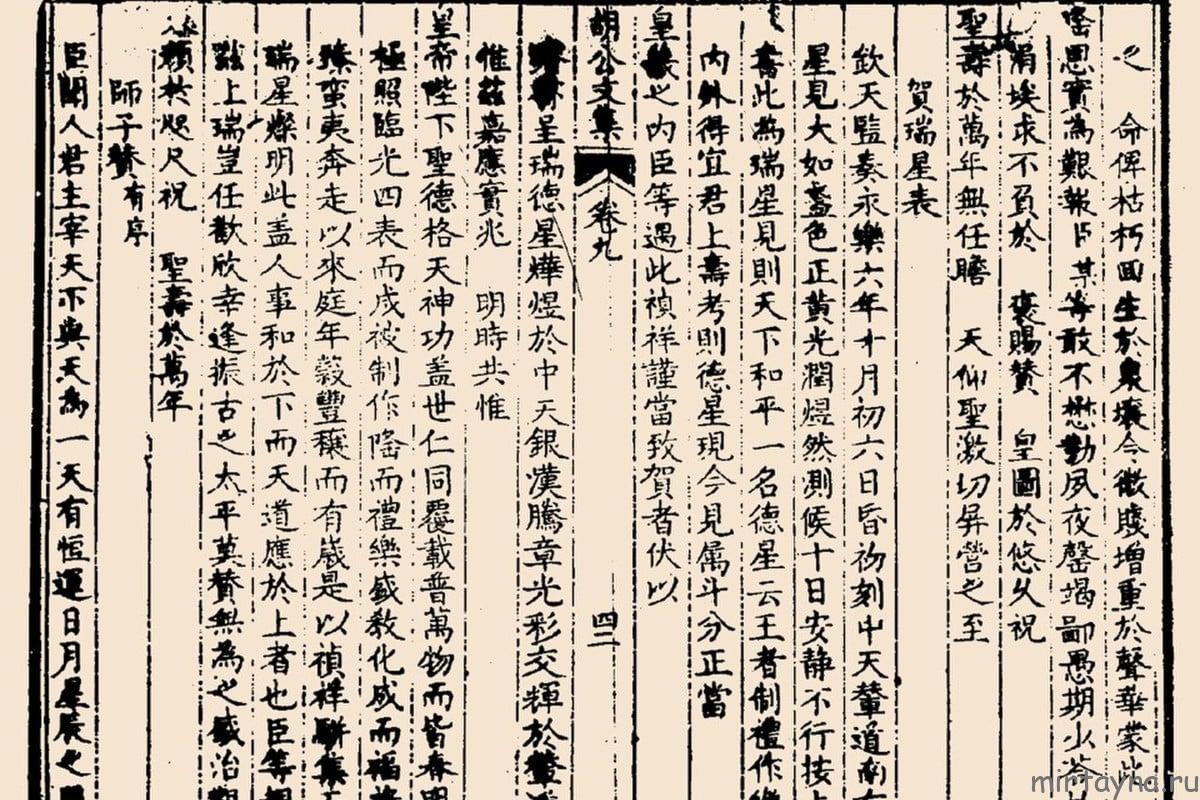 之 命俾枯朽回生於泉壤今微賤增重於聲華蒙此
密思實為艱報臣某等敢不懋勤夙夜罄竭鄙愚期少答
涓埃求不負於 褒賜贊 皇圖於悠久祝
聖壽於萬年無任瞻 天仰聖激切屏營之至
賀瑞星表
欽天監奏永樂六年十月初六日昏初刻中天輦道南有
星見大如盞色正黃光潤煜然測候十日安靜不行按占
書此為瑞星見則天下和平一名德星云王者制禮作樂
內外得宜君上壽考則德星現今見屬斗分正當
皇 之內臣等遇此禎祥謹當致賀者伏以
胡公文集 卷九 四二
呈瑞德星燁煜於中天銀漢騰章光彩交輝於輦
惟茲嘉應實兆 明時共惟
皇帝陛下聖德格天神功蓋世仁同覆載普萬物而皆春明
極照臨光四表而咸被制作隆而禮樂盛教化成而福
臻蠻夷奔走以來庭年穀豐穰而有歲是以禎祥駢集
瑞星燦明此盖人事和於下而天道應於上者也臣等
茲上瑞豈任歡欣幸逢振古之太平莫贊無為之盛治
顏於咫尺祝 聖壽於萬年
師子贊有序
臣聞人君主宰天下與天為一天有恒運日月星辰之
mirtayna.ru